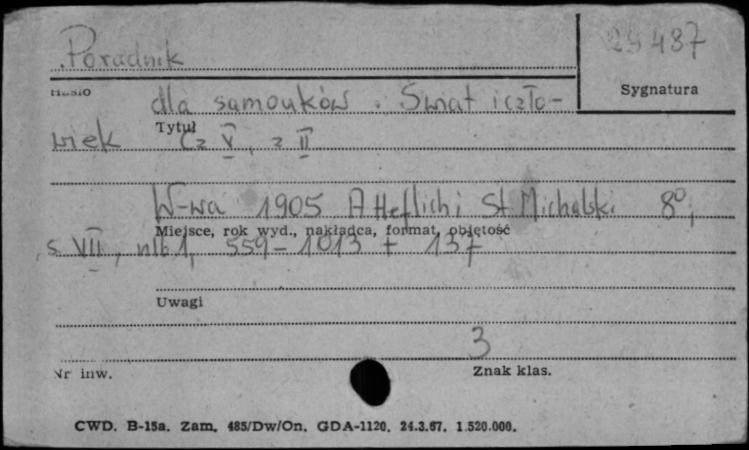 Poradnik
29487
Hasło
Sygnatura
dla samouków. Świat i czło-
Tytuł
wiek Cz V, z II
W-wa 1905 A Heflich i St Michalski 8°,
Miejsce, rok wyd., nakładca, format, objętość
s. VII, nlb. 1, 559-1013 + 137
Uwagi
3
Nr inw.
Znak klas.
CWD. B-15a. Zam. 485/Dw/On. GDA-1120. 24.3.67. 1.520.000.